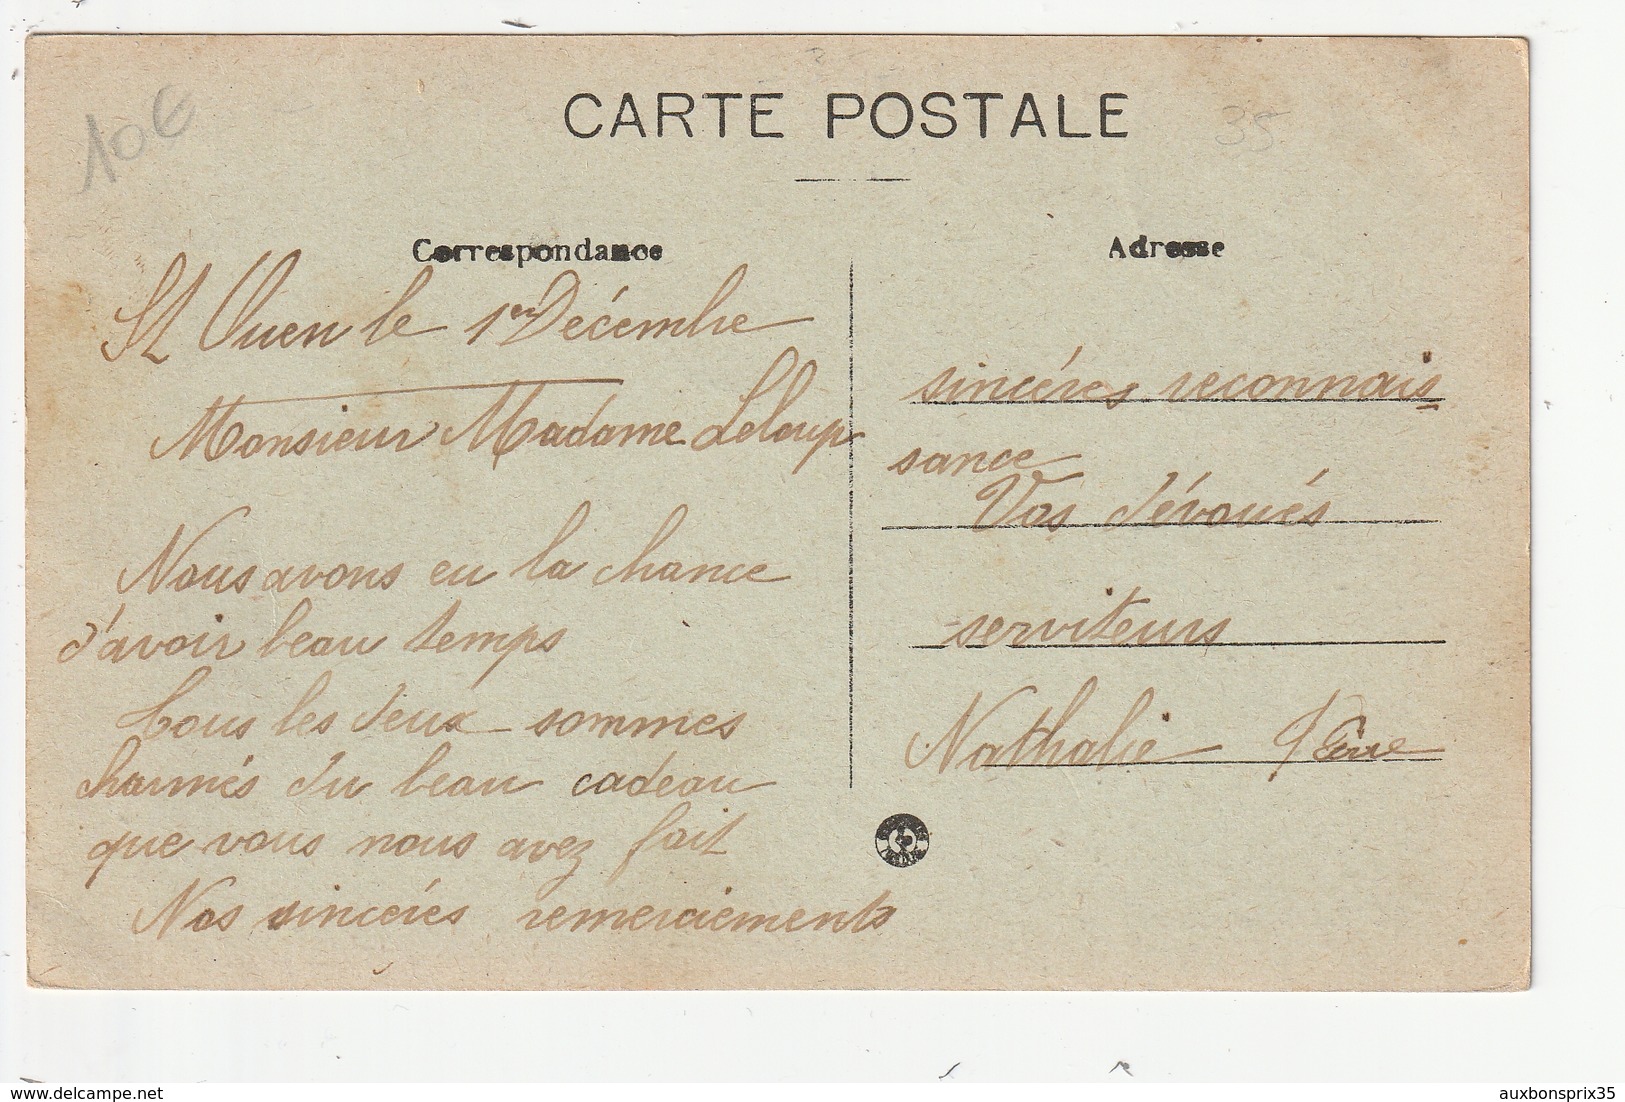 10€
CARTE POSTALE
35
Correspondance
Adresse
St Ouen le 1er Décembre
Monsieur Madame Leloup
Nous avons eu la chance
d'avoir beau temps
Tous les deux sommes
charmés du beau cadeau
que vous nous avez fait
Nos sincéres remerciements
sincéres reconnais
sance
Vos dévoués
serviteurs
Nathalie
www.delcampe.net
auxbonsprix35